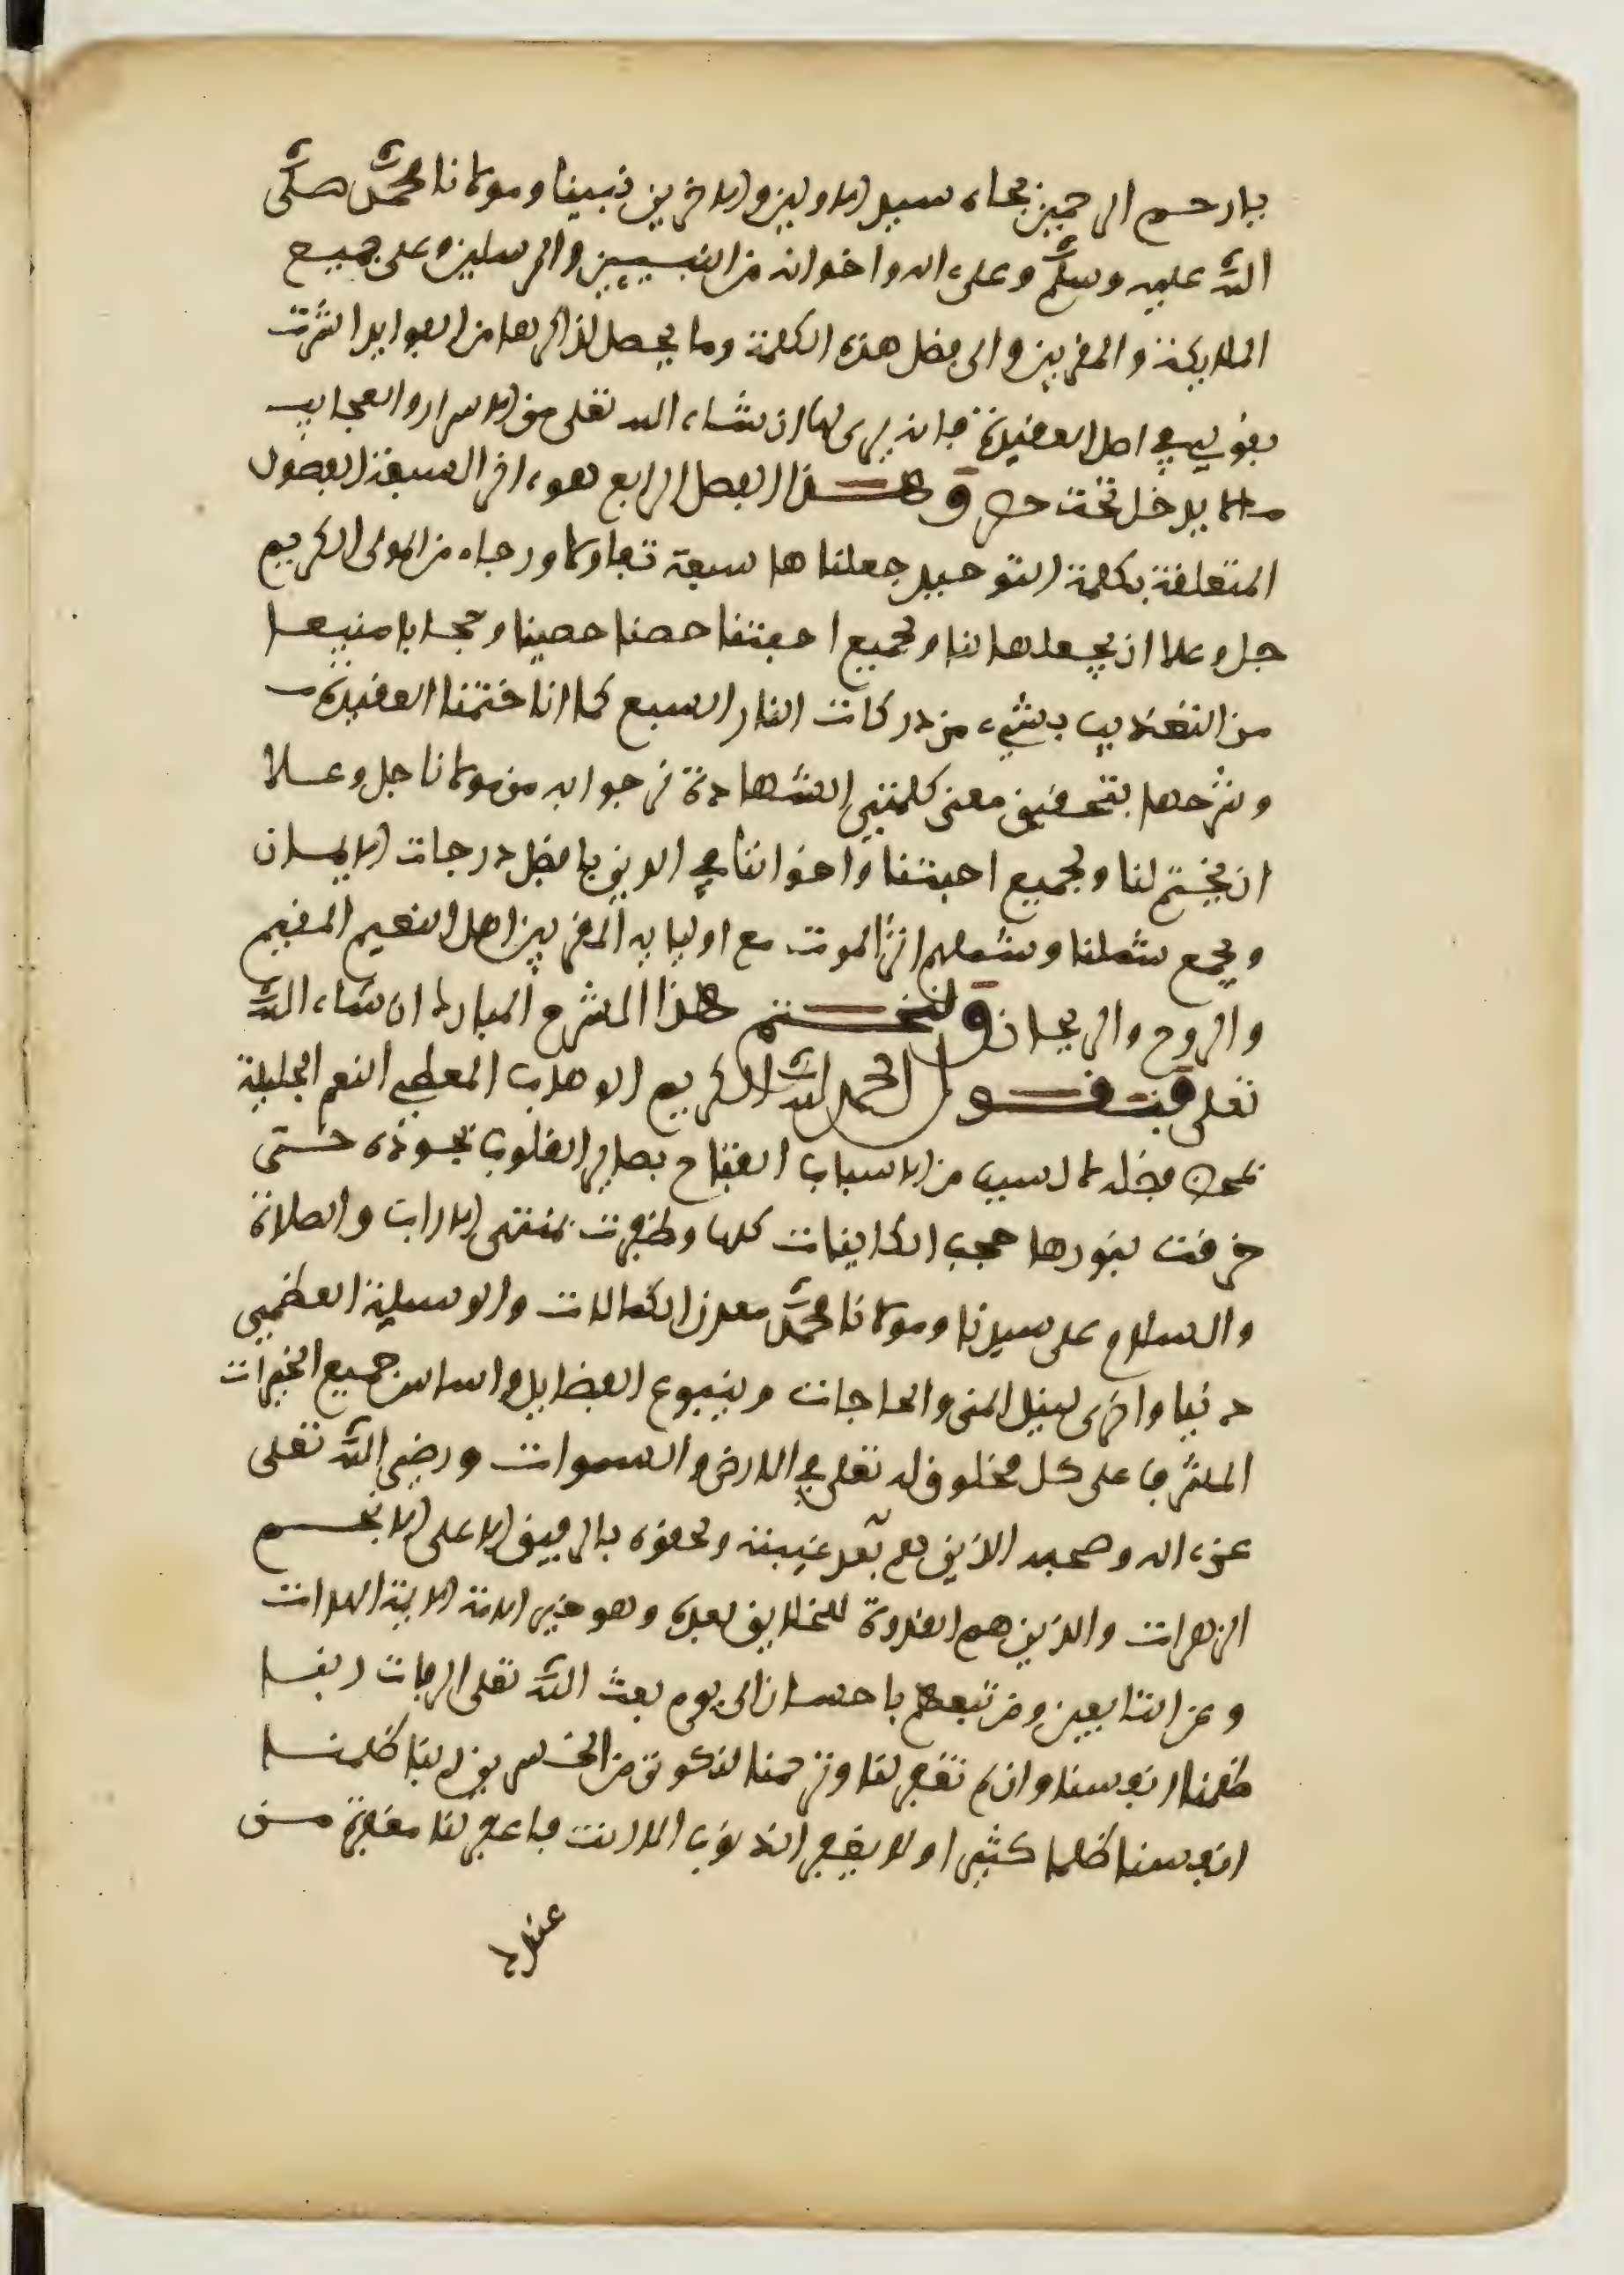 يا ارحم الرحمين بجاه سيد الاولين والاخرين نبينا ومولانا محمد صلى
الله عليه وسلم وعلى ءاله واخوانه من النبيين والمرسلين وعلى جميع
الملايكة والمقربين والى فضل هذه الكلمة وما يحصل لذاكرها من الفوايد اشرت
بقولي في اصل العقيدة فانه يرى لها ان شاء الله تعلى من الاسرار والعجايب
ما لا يدخل تحت حصر وهذا الفصل الرابع هو ءاخر السبعة الفصول
المتعلقة بكلمة التوحيد جعلناها سبعة تفاولا ورجاء من المولى الكريم
جل وعلا ان يجعلها لنا ولجميع احبتنا حصنا حصينا وحجابا منيعا
من التعذيب بشيء من دركات النار السبع كما انا ختمنا العقيدة
وشرحها بتحقيق معنى كلمتي الشهادة نرجوا به من مولانا جل وعلا
ان يختم لنا ولجميع احبتنا واخواننا في الدين بافضل درجات الايمان
ويجمع شملنا وشملهم اثر الموت مع اوليايه المقربين اهل النعيم المقيم
والروح والريحان ولنختم هذا الشرح المبارك ان شاء الله
تعلى فنقول الحمد لله الكريم الوهاب المعطي النعم الجليلة
بمحض فضله لا لسبب من الاسباب الفتاح بصاير القلوب بجوده حتى
خرقت بنورها حجب الكاينات كلها وظفرت بمنتهى الاراب والصلاة
والسلام على سيدنا ومولانا محمد معدن الكمالات والوسيلة العظمى
دنيا واخرى لنيل المنى والحاجات وينبوع الفضايل واساس جميع الخيرات
المشرف على كل مخلوق له تعلى في الارض والسموات ورضي الله تعلى
عن ءاله وصحبه الذين هم بعد غيبته ولحوقه بالرفيق الاعلى الانجم
الزهرات والذين هم القدوة للخلايق بعده وهو خير الامة
وعن التابعين ومن تبعهم باحسان الى يوم بعث الله تعلى الرفات ربنا
ظلمنا انفسنا وان لم تغفر لنا وترحمنا لنكونن من الخسرين ربنا ظلمنا
انفسنا ظلما كثيرا ولا يغفر الذنوب الا انت فاغفر لنا مغفرة من
عندك